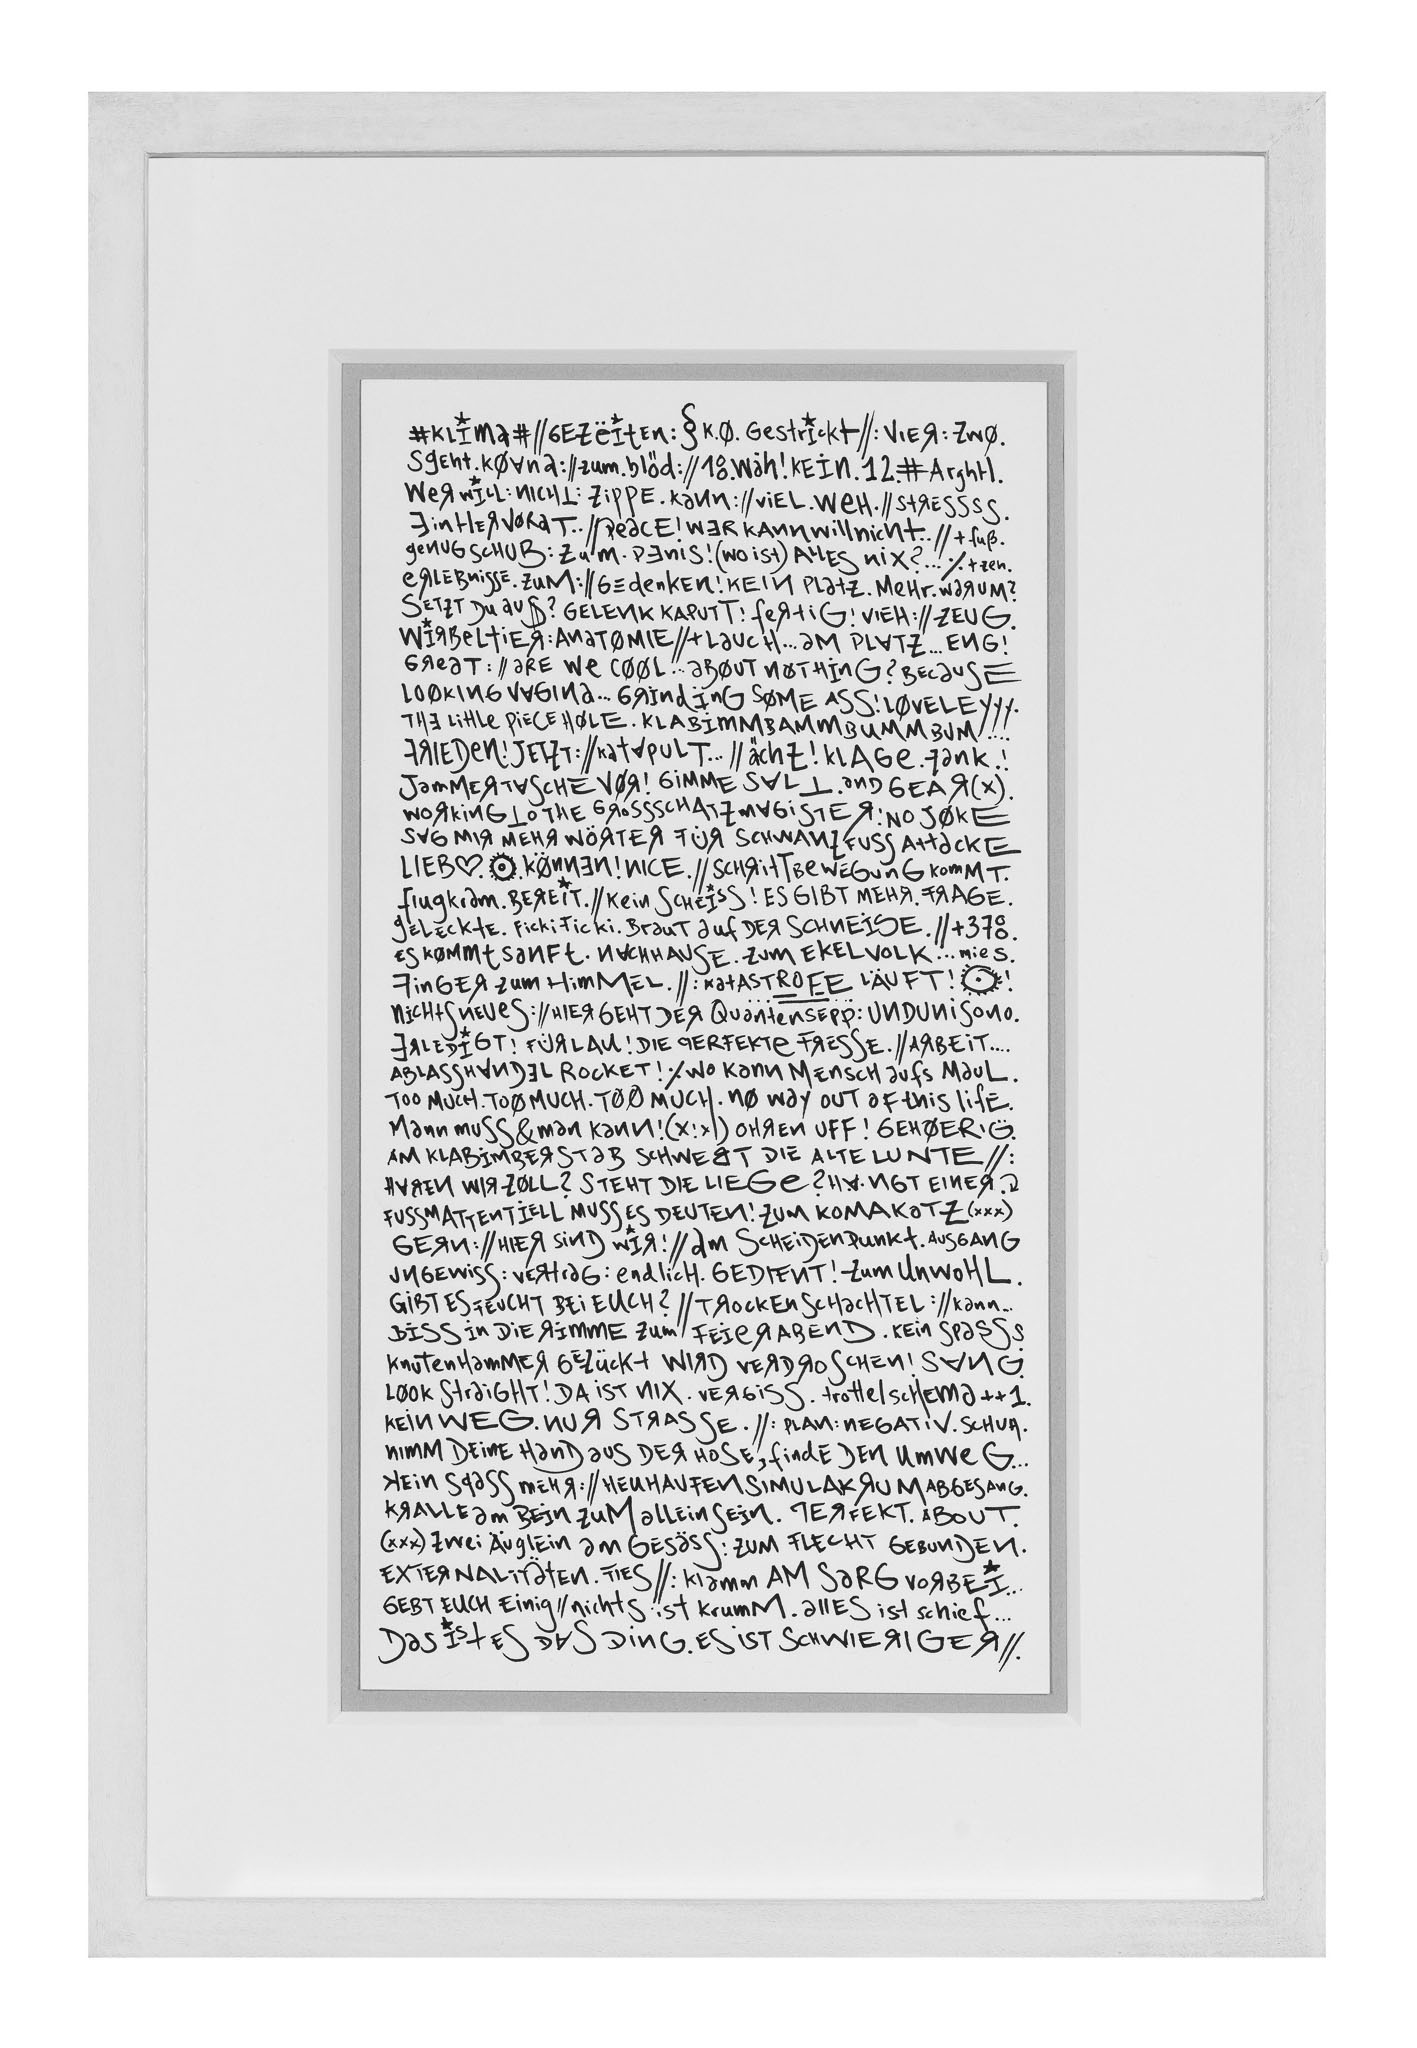 #KLiMa#//GEZEiTEN:§K.Ø. GestricKt//:ViER:ZWØ.
SgEht.KØANA://zum.blöd://18.Wäh!KEiN.12.#Arghtl.
WER WiLL:NiCHT:ZiPPE.KANN://ViEL.WEH.//STRESSSS.
EiNHERVØRAT..//PEACE!WER KANN will nicht..//+fuß.
GENUG SCHUB:ZUM.PENiS!(WO iST)ALLES NiX?...%+zen.
ERLEBNiSSE.ZUM://GEdENKEN!KEiN PLATZ.MEHR.WARUM?
SETZT DU AUS?GELENK KAPUTT!FERTiG!ViEH://ZEUG.
WiRBELTiER:ANATØMIE//+LAUCH...AM PLATZ...ENG!
GREAT://ARE WE CØØL...ABØUT NØTHiNG?BECAUSE
LOØKING VAGiNA...GRiNdiNG SØME ASS!LØVELEYYY.
THE LiTTLE PiECEHØLE.KLABiMMBAMMBUMMBUM....
FRiEDEN!JETZT://KATAPULT...//ächZ!KLAGE.ZANK.!
JAMMERTASCHE VØR!GiMME SALT.AND GEAR(X).
WORKiNG TO THE GROSSSCHATZMAGiSTER!NO JØKE
SAG MiR MEHR WÖRTER FÜR SCHWANZFUSSATTACKE
LIEB♡.⊙.KÖNNEN!NICE.//SCHRiTTBEWEGUNG KOMMT.
flugkram.BEREiT.//KEiN SCHEiSS!ES GIBT MEHR.FRAGE.
GELECKTE.FiCKiFiCKi.BRAUT AUF DER SCHNEiSE.//+378.
ES KØMMT SANFT.NACHHAUSE.ZUM EKELVOLK...MiES.
FiNGER ZUM HiMMEL.//:KATASTROFE LÄUFT!⊙!
NiCHTS NEUES://HIER GEHT DER QUANTENSEPP:UNDUNiSONO.
ERLEDiGT!FÜR LAU!DIE PERFEKTE FRESSE.//ARBEiT....
ABLASSHANDEL ROCKET!%WO KANN MENSCH AUFS MAUL.
TOO MUCH.TOØ MUCH.TØØ MUCH.NØ WAY OUT OF THiS LiFE.
MANN MUSS&MAN KANN!(X!X|)OHREN UFF!GEHØERiG.
AM KLABiMBERSTAB SCHWEBT DIE ALTE LUNTE//:
HAREN WIR ZØLL?STEHT DIE LIEGE?HA.NGT EINER.
FUSSMATTENTiELL MUSS ES DEUTEN!ZUM KOMAKATZ(XXX)
GERN://HIER SiND WiR!//AM SCHEiDENPUNKT.AUSGANG
UNGEWISS:VERTRAG:ENDLiCH.GEDIENT!ZUM UNWOHL.
GIBT ES FEUCHT BEi EUCH?//TROCKENSCHACHTEL://KANN...
BiSS iN DIE RiMME ZUM FEiERABEND.KEiN SPASSS
KNUTENHAMMER GEZÜCKT WIRD VERDROSCHEN!SANG.
LØØK STRAIGHT!DA iST NIX.VERGiSS.TROTTELSCHEMA++1.
KEiN WEG.NUR STRASSE.//:PLAN:NEGATiV.SCHUH.
NIMM DEINE HAND AUS DER HOSE,FINDE DEN UMWEG...
KEiN SPASS MEHR://HEUHAUFENSIMULAKRUMABGESANG.
KRALLE AM BEiN ZUM ALLEiNSEiN.PERFEKT.ABOUT.
(XXX)ZWEi ÄUGLEiN AM GESÄSS:ZUM FLECHT GEBUNDEN.
EXTERNALiTÄTEN.FiES//:KLAMM AM SARG VORBEi...
GEBT EUCH EiNiG//NiCHTS iST KRUMM.ALLES iST SCHiEF...
DAS iST ES DAS DiNG.ES iST SCHWIERIGER//.